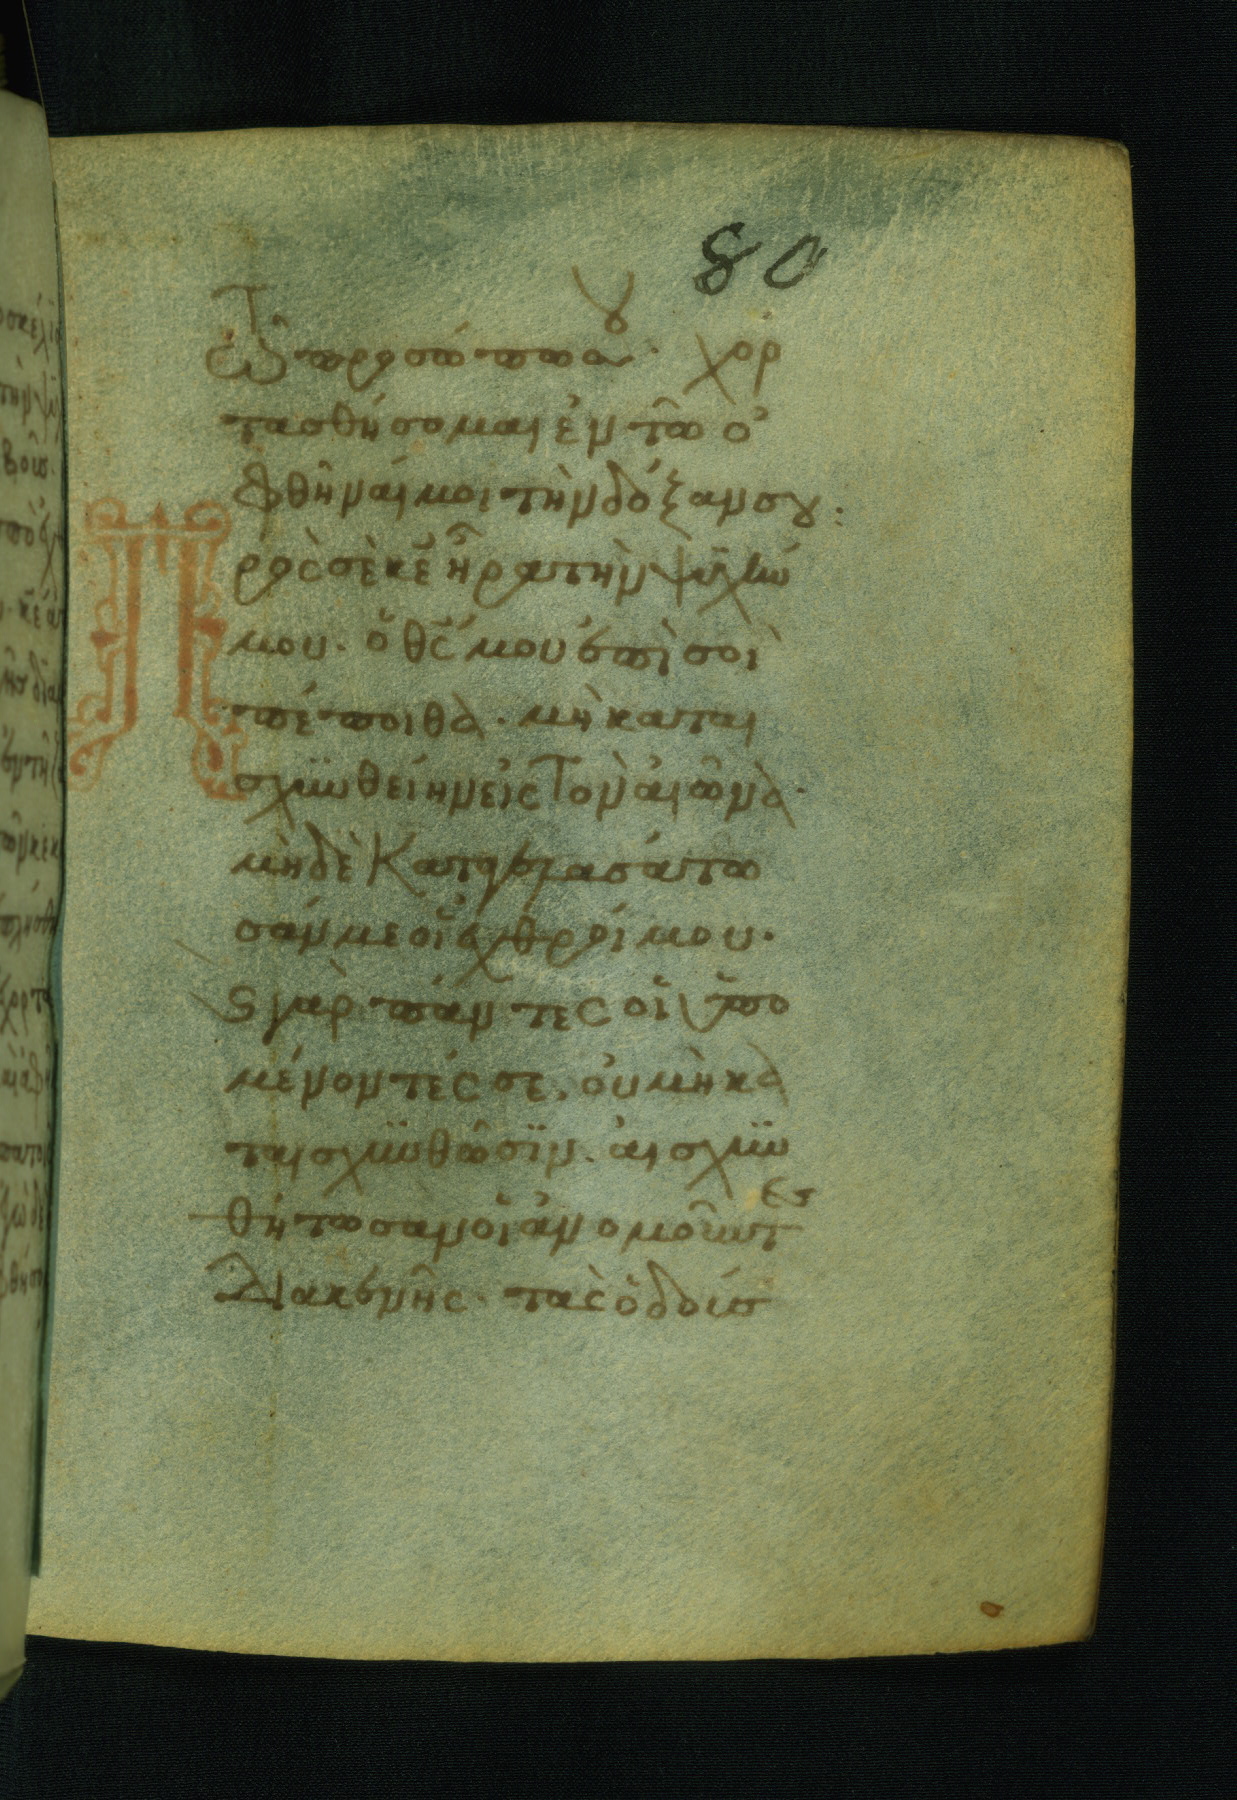 80
τῷ προσώπῳ σου· χορ
τασθήσομαι ἐν τῶ ὀ
φθῆναί μοι τὴν δόξαν σου:
Προς σὲ κε ἦρα τὴν ψυχήν
μου· ὁ θς μου ἐπὶ σοὶ
πέποιθα· μὴ καται
σχυνθείην εἰς τὸν αἰῶνα·
μηδὲ καταγελασάτω
σάν με οἱ ἐχθροί μου·
ϗ γὰρ πάντες οἱ ὑπο
μένοντές σε, οὐ μὴ κα
ταισχυνθῶσϊν· αἰσχυν
θήτωσαν οἱ ἀνομοῦντες
διακενῆς· τὰς ὁδούσ